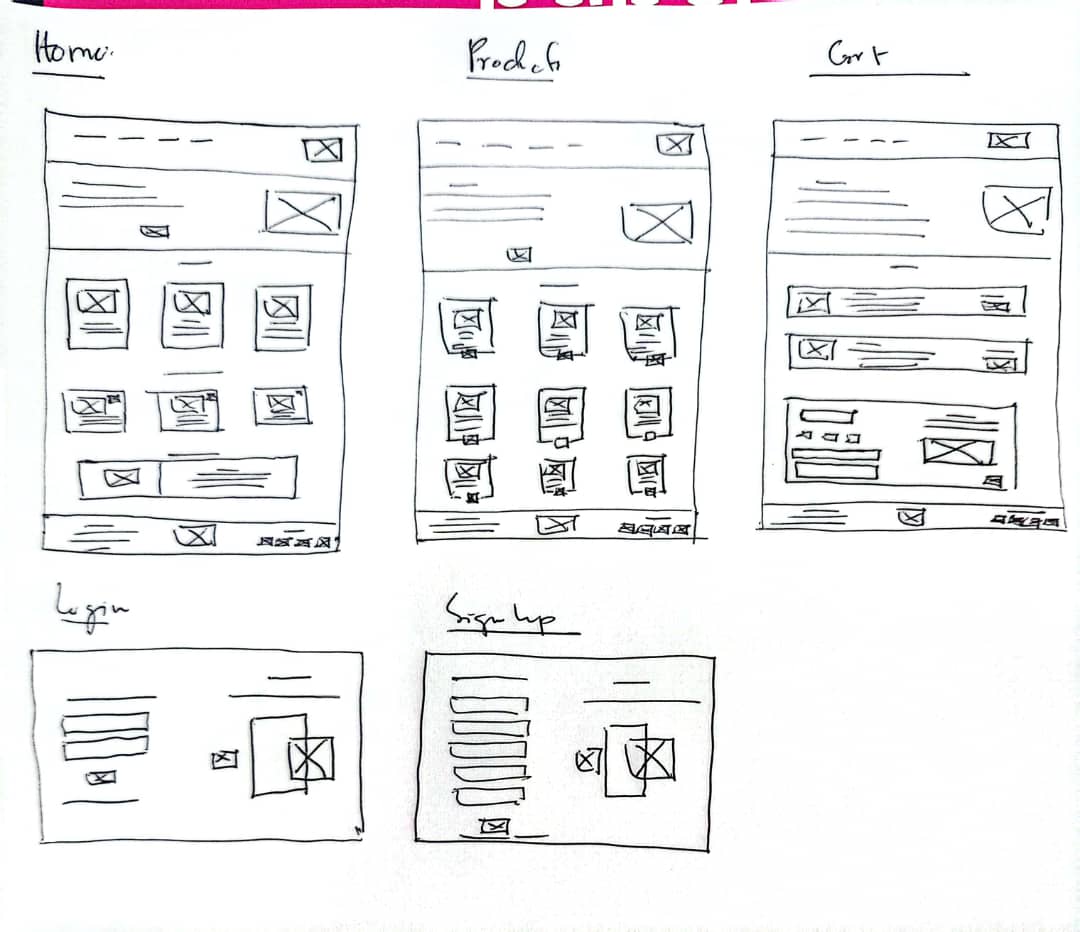 Home
Products
Cart
Login
Sign Up